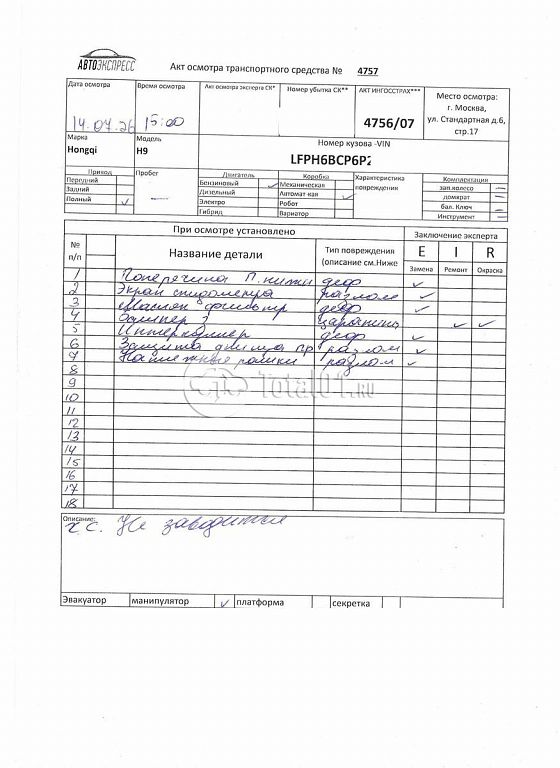 АВТОЭКСПРЕСС
Акт осмотра транспортного средства № 4757
Дата осмотра Время осмотра Акт осмотра эксперта СК* Номер убытка СК** АКТ ИНГОССТРАХ*** Место осмотра:
г. Москва,
ул. Стандартная д.6,
стр.17
14.07.26 15:00 4756/07
Марка Модель Номер кузова -VIN
Hongqi H9 LFPH6BCP6P2
Привод Пробег Двигатель Коробка Характеристика повреждения Комплектация
Передний Бензиновый Механическая зап.колесо
Задний Дизельный Автомат кая домкрат
Полный Электро Робот бал. Ключ
Гибрид Вариатор Инструмент
При осмотре установлено Заключение эксперта
№ п/п Название детали Тип повреждения (описание см.Ниже E I R
Замена Ремонт Окраска
1 Поперечина П. нижн деф
2 Экран разлом
3 Маслян фильтр деф
4 Бампер З царапины
5 Интеркуллер деф
6 Защита днища пр разлом
7 разлом
8
9
10
11
12
13
14
15
16
17
18
Total01.RU
Описание:
х с. Не заводится
Эвакуатор манипулятор платформа секретка